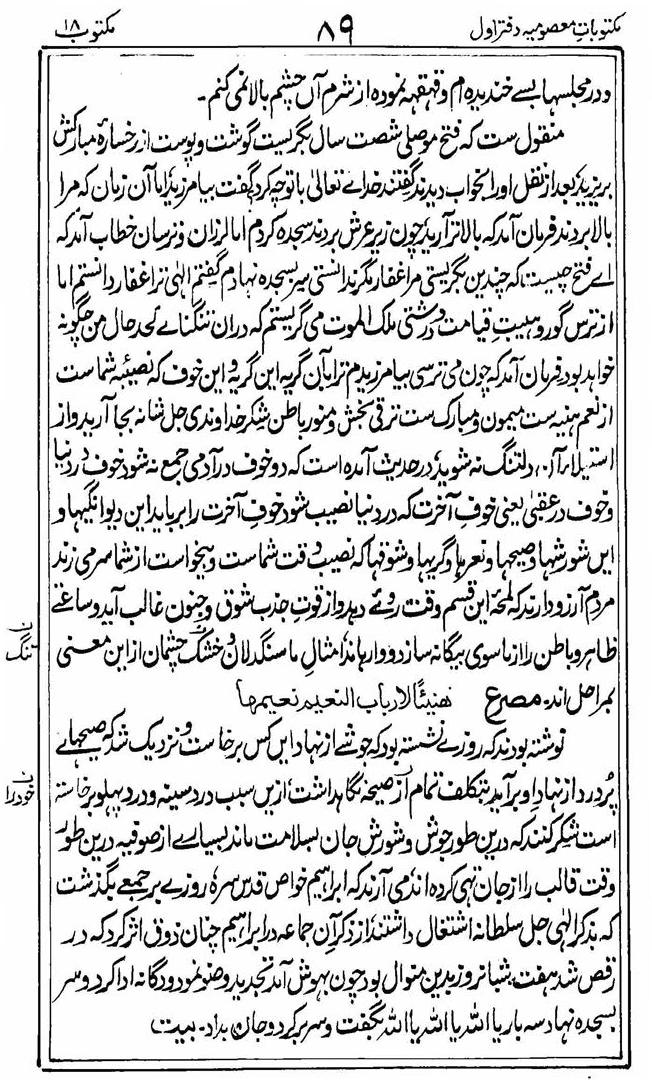 مکتوبات معصومیہ دفتر اول ۸۹ مکتوب ۱۸
ودر مجلسہا بسے خندیدہ ام و قہقہہ نمودہ از شرم آں چشم بالا نمی کنم۔
منقول ست کہ فتح موصلی شصت سال بگریست گوشت و پوست از رخسارۂ مبارکش
بریزید بعد از نقل اورا بخواب دیدند گفتند خدائے تعالیٰ با تو چہ کرد گفت بیامرزید اما آن زمان کہ مرا
بالا بردند فرمان آمد کہ بالاتر آرید چون زیر عرش بردند سجدہ کردم اما لرزان و ترسان خطاب آمد کہ
اے فتح چیست کہ چندین بگریستی مرا غفار نگر ندانستی سر بسجدہ نہادم گفتم الٰہی ترا غفار دانستم اما
از ترس گور و ہیبت قیامت و درشتی ملک الموت می گریستم کہ دران تنگنائے لحد حال من چگونہ
خواہد بود فرمان آمد کہ چون می ترسی بیامرزیدم ترا بآن گریہ این گریہ و این خوف کہ نصیبۂ شماست
از نعم ہنیہ ست میمون و مبارک ست ترقی بخش و منور باطن شکر خداوندی جل شانہ بجا آرید و از
استیلاء آن دلتنگ نہ شوید در حدیث آمدہ است کہ دو خوف در آدمی جمع نہ شود خوف در دنیا
و خوف در عقبیٰ یعنی خوف آخرت کہ در دنیا نصیب شود خوف آخرت را برباید این دیوانگیہا و
ایں شورشہا و صیحہا و نعرہا و گریہا و شوقہا کہ نصیب وقت شماست و بیخواست از شما سر می زند
مردم آرزو دارند کہ لمحہ این قسم وقت روئے دہد و از قوت جذب شوق و جنون غالب آید و ساعتے
ظاہر و باطن را از ما سوی بیگانہ سازد و وارہاند امثال ما سنگدلان و خشک چشمان از این معنی
بمراحل اند۔ مصرع هنیئًا لارباب النعیم نعیمها
نوشتہ بودند کہ روزے نشستہ بود کہ جوشے از نہاد ایں کس برخاست و نزدیک شد کہ صیحہائے
پُر درد از نہاد او برآمد بتکلف تمام از صیحہ نگاہداشت ازیں سبب درد سینہ و درد پہلو برخاستہ
است شکر کنند کہ درین طور جوش و شورش جان بسلامت ماند بسیارے از صوفیہ درین طور
وقت قالب را از جان تہی کردہ اند می آرند کہ ابراہیم خواص قدس سرہ روزے بر جمعے بگذشت
کہ بذکر الٰہی جل سلطانہ اشتغال داشتند از ذکر آن جماعہ در ابراہیم چنان ذوق اثر کرد کہ در
رقص شد ہفت شبانروز بدین منوال بود چون بہوش آمد تجدید وضو نمود و دوگانہ ادا کرد و سر
بسجدہ نہاد سہ بار یا اللہ یا اللہ یا اللہ بگفت و سر بر کرد و جان بداد۔ بیت
ن
تنگ
ن
خود را